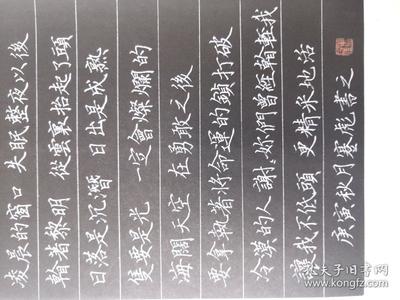 凌晨的窗口 失眠整夜以後
著黎明 從雲裏抬起了頭
日落是沉潛 日出是成熟
隻要是光 一定會燦爛的
海闊天空 在勇敢之後
要拿執著將命運的鎖打破
冷漠的人 謝你們曾經輕我
讓我不低頭 更精采地活
庚寅秋月寒彪書之
孔夫子旧书网